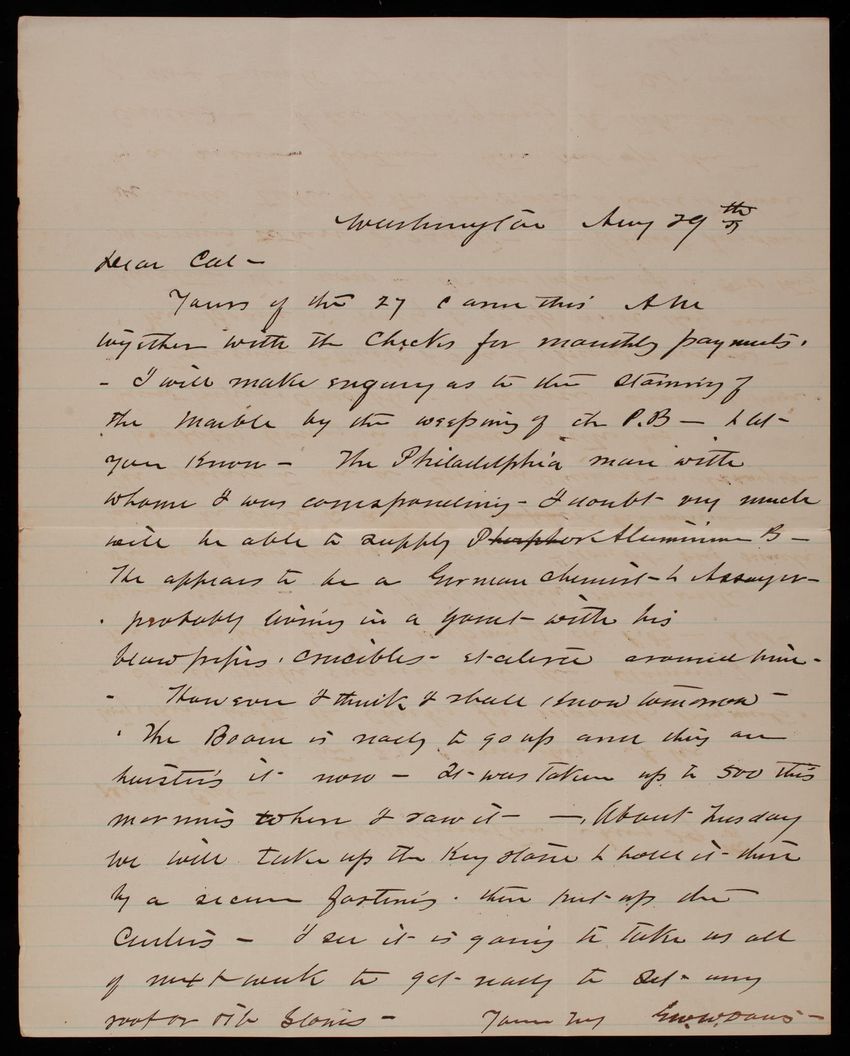 Washington Aug 29th
Dear Col -
Yours of the 27 came this AM
together with the checks for monthly payments.
- I will make enquiry as to the staining of
the Marble by the weeping of the P.B - & let
you know - The Philadelphia man with
whome I was corresponding - I doubt very much
will be able to supply Phosphor Aluminium B -
He appears to be a German chemist & Assayer -
probably living in a garret with his
blowpipes, crucibles - et-cetera around him -
- However I think I shall know tomorrow -
The Boom is ready to go up and they are
hoisting it now - It was taken up to 500 this
morning where I saw it - - About Tuesday
we will take up the Key stone & hold it there
by a secure fastening. then put up the
Centers - I see it is going to take us all
of next week to get ready to set any
roof or rib stones - Yours Try Geo. W. Davis -